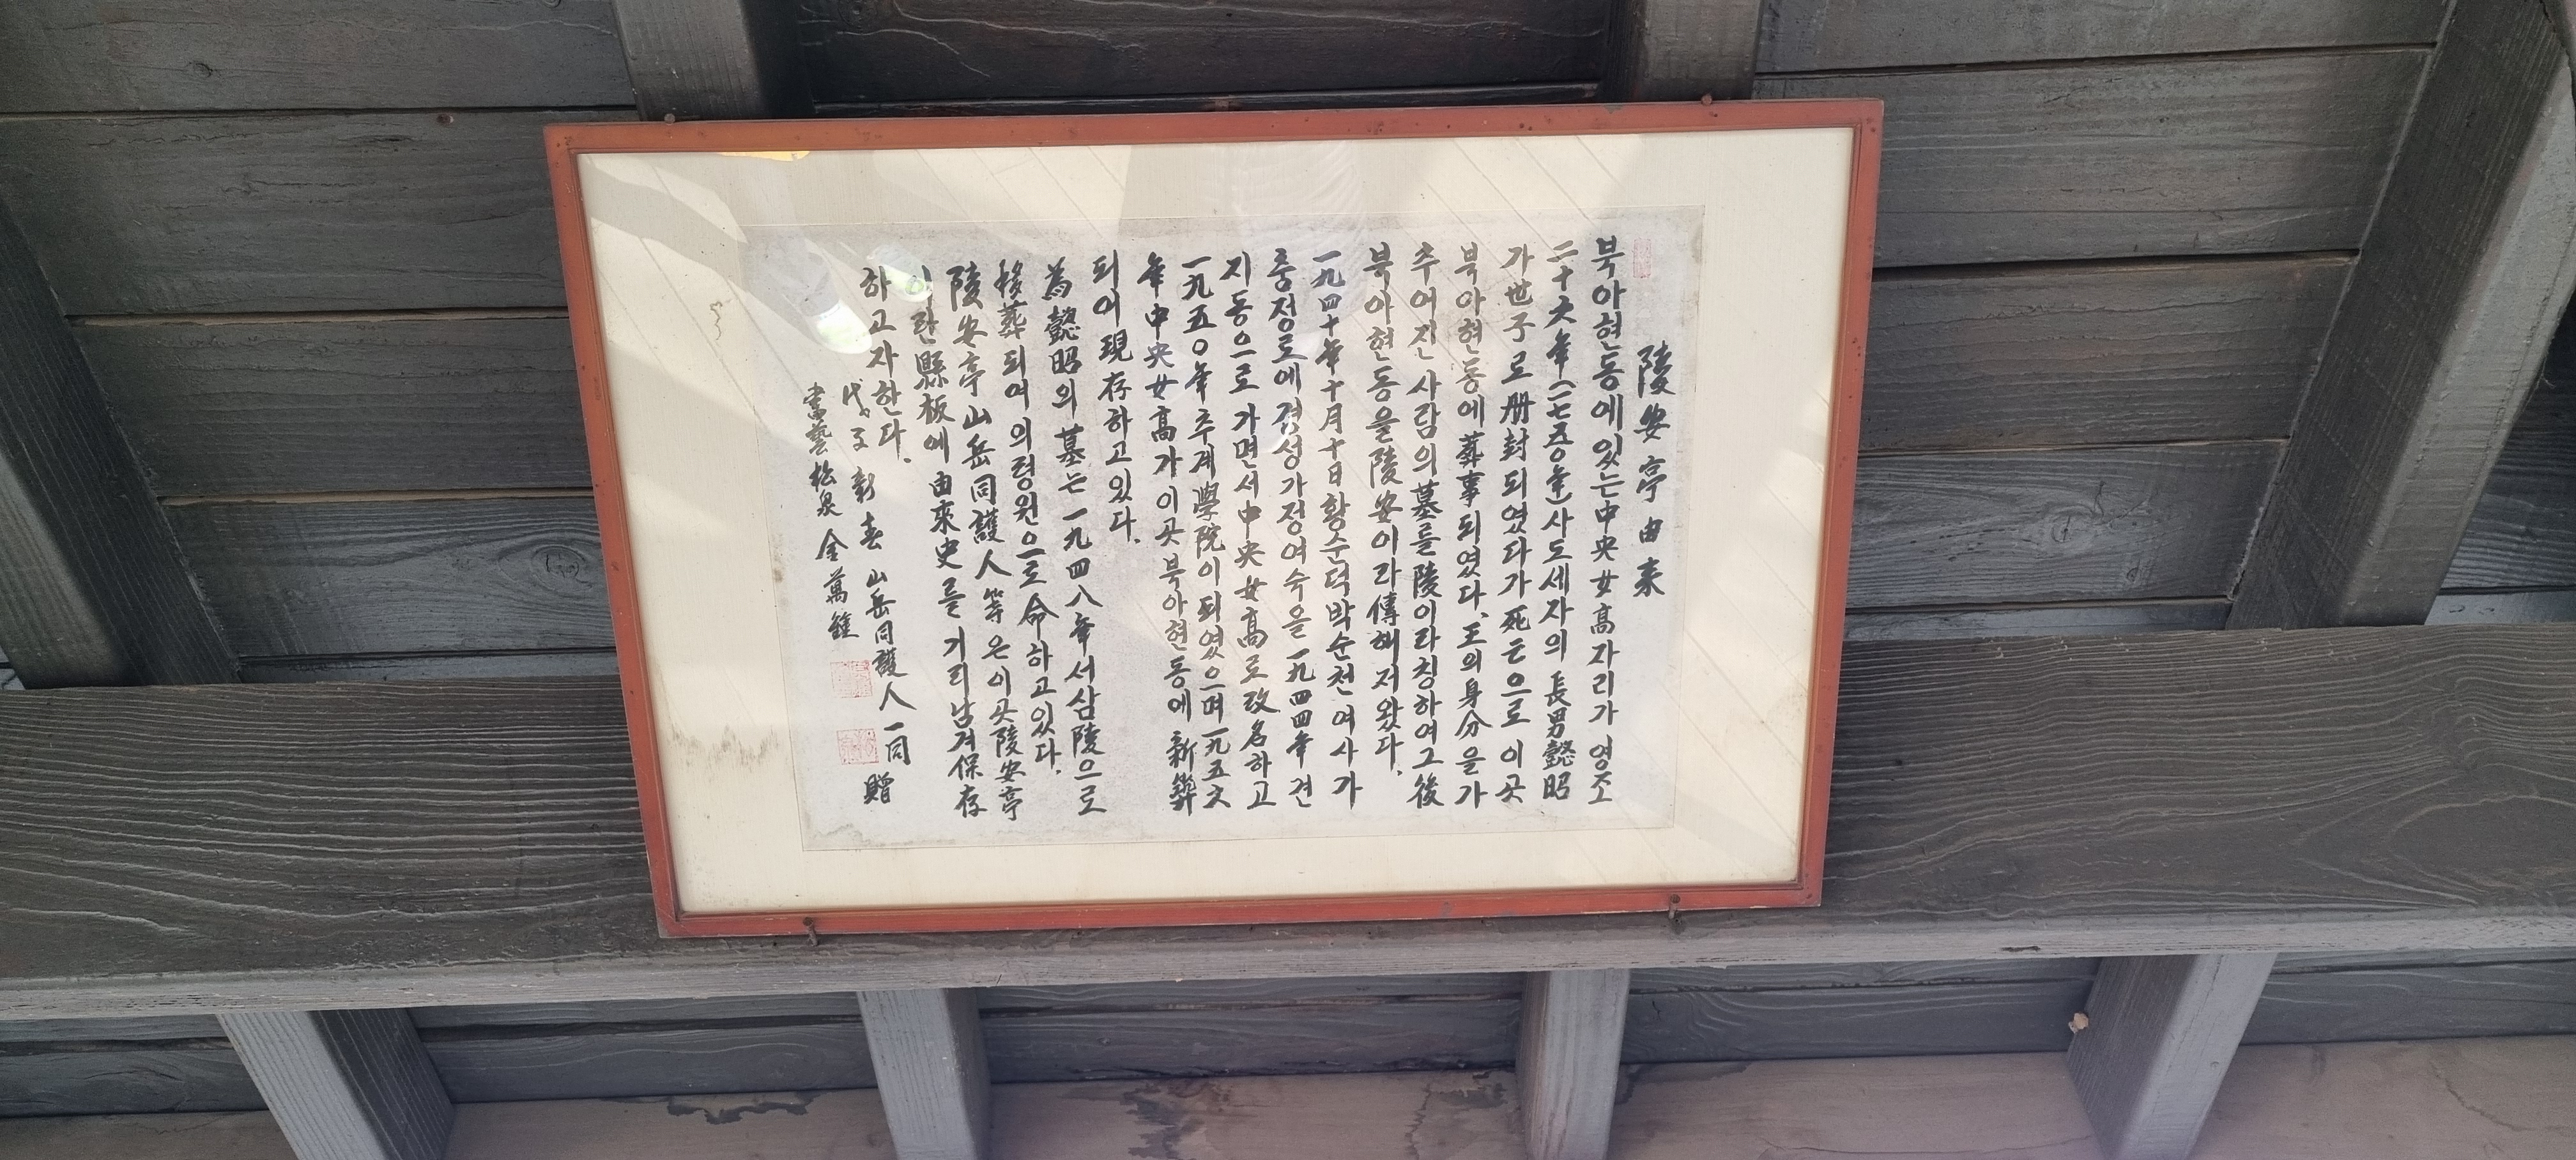 陵安亭由來
북아현동에있는中央女高자리가 영조
二十六年(一七五○年)사도세자의 長男懿昭
가世子로册封되였다가 死亡으로 이곳
북아현동에葬事되였다. 王의身分을가
추어진 사람의墓를陵이라칭하여그後
북아현동을陵安이라傳해저왔다.
一九四十年十月十日황순덕박순천 여사가
충정로에경성가정여숙을一九四四年 견
지동으로 가면서中央女高로改名하고
一九五○年추계學院이되였으며一九五六
年中央女高가이곳 북아현동에 新築
되여現存하고있다.
為懿昭의墓는一九四八年서삼陵으로
移葬되여 의령원으로命하고있다.
陵安亭山岳同護人等은이곳陵安亭
이란縣板에由來史를 기리남겨保存
하고자한다.
戊子 新春 山岳同護人一同 贈
書藝松泉 金萬鍾